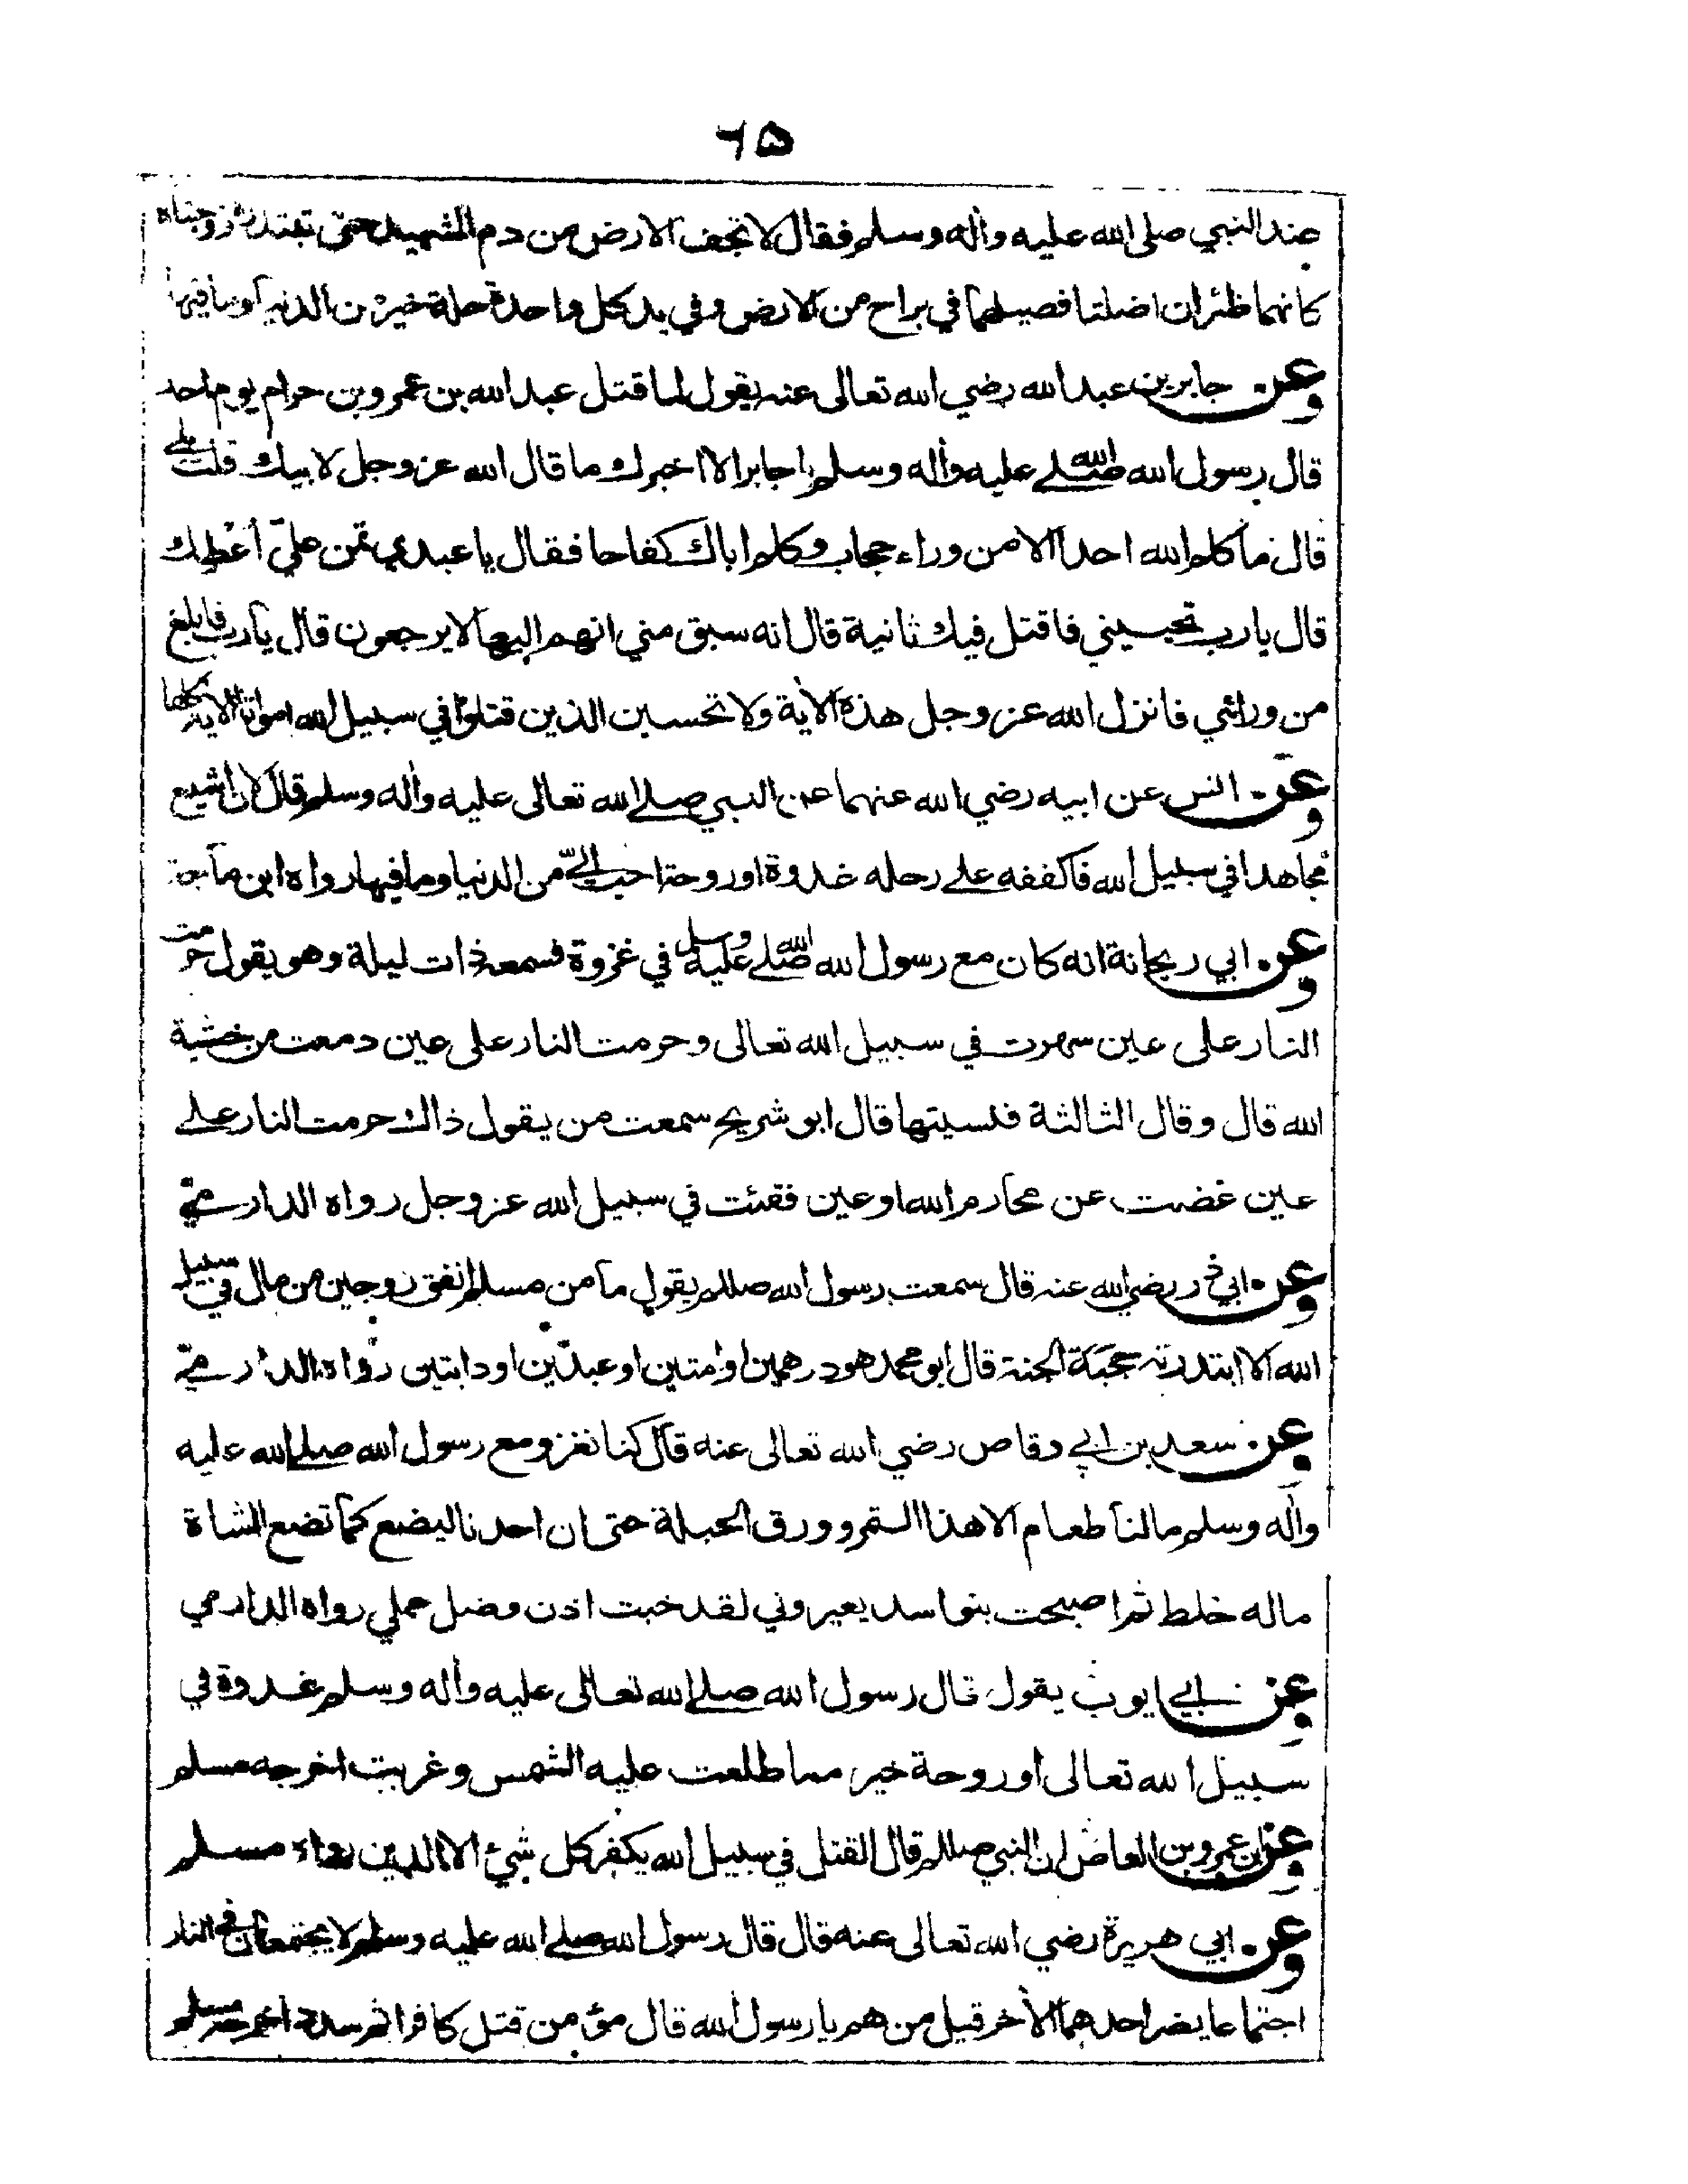 ٦٥
عند النبي صلى الله عليه واٰله وسلم فقال لا تجف الارض من دم الشهيد حتى تبتدره زوجتاه
كانهما ظئران اضلتا فصيلهما في براح من الارض وفي يد كل واحدة حلة خير من الدنيا وما فيها
وعن جابر بن عبد الله رضي الله تعالى عنه يقول لما قتل عبد الله بن عمرو بن حرام يوم احد
قال رسول الله صلے الله عليه واٰله وسلم يا جابر الا اخبرك ما قال الله عز وجل لابيك قلت بلے
قال ما كلم الله احدا الا من وراء حجاب وكلم اباك كفاحا فقال يا عبدي تمن علىّ أعْطِك
قال يا رب تحييني فاقتل فيك ثانية قال انه سبق مني انهم اليها لا يرجعون قال يا رب فابلغ
من ورائي فانزل الله عز وجل هذه الاٰية ولا تحسبن الذين قتلوا في سبيل الله امواتا الاٰية كلها
وعن انس عن ابيه رضي الله عنهما عن النبي صلے الله تعالى عليه واٰله وسلم قال لان اشيع
مجاهدا في سبيل الله فاكففه علے رحله غدوة او روحة احب اليّ من الدنيا وما فيها رواه ابن ماجة
وعن ابي ريحانة انه كان مع رسول الله صلے الله عليه وسلم في غزوة فسمعه ذات ليلة وهو يقول حرمت
النار على عين سهرت في سبيل الله تعالى وحرمت النار على عين دمعت من خشية
الله قال وقال الثالثة فنسيتها قال ابو شريح سمعت من يقول ذاك حرمت النار علے
عين غضت عن محارم الله او عين فقئت في سبيل الله عز وجل رواه الدارمي
وعن ابي ذر رضي الله عنه قال سمعت رسول الله صللم يقول ما من مسلم انفق زوجين من مال في سبيل
الله الا ابتدرته حجبة الجنة قال ابو محمد هو درهمين او امتين او عبدين او دابتين رواه الدارمي
وعن سعد بن ابي وقاص رضي الله تعالى عنه قال كنا نغزو مع رسول الله صلے الله عليه
واٰله وسلم مالنا طعام الا هذا السمر وورق الحبلة حتى ان احدنا ليضع كما تضع الشاة
ماله خلط ثم اصبحت بنو اسد يعيروني لقد خبت اذن وضل عملي رواه الدارمي
وعن ابي ايوب يقول قال رسول الله صلے الله تعالى عليه واٰله وسلم غدوة في
سبيل الله تعالى او روحة خير مما طلعت عليه الشمس وغربت اخرجه مسلم
وعن ابن عمرو بن العاص ان النبي صللم قال القتل في سبيل الله يكفر كل شيئ الا الدين رواه مسلم
وعن ابي هريرة رضي الله تعالى عنه قال قال رسول الله صلے الله عليه وسلم لا يجتمعان في النار
اجتماعا يضر احدهما الاٰخر قيل من هم يا رسول الله قال مؤمن قتل كافرا ثم سدد اخرجه مسلم